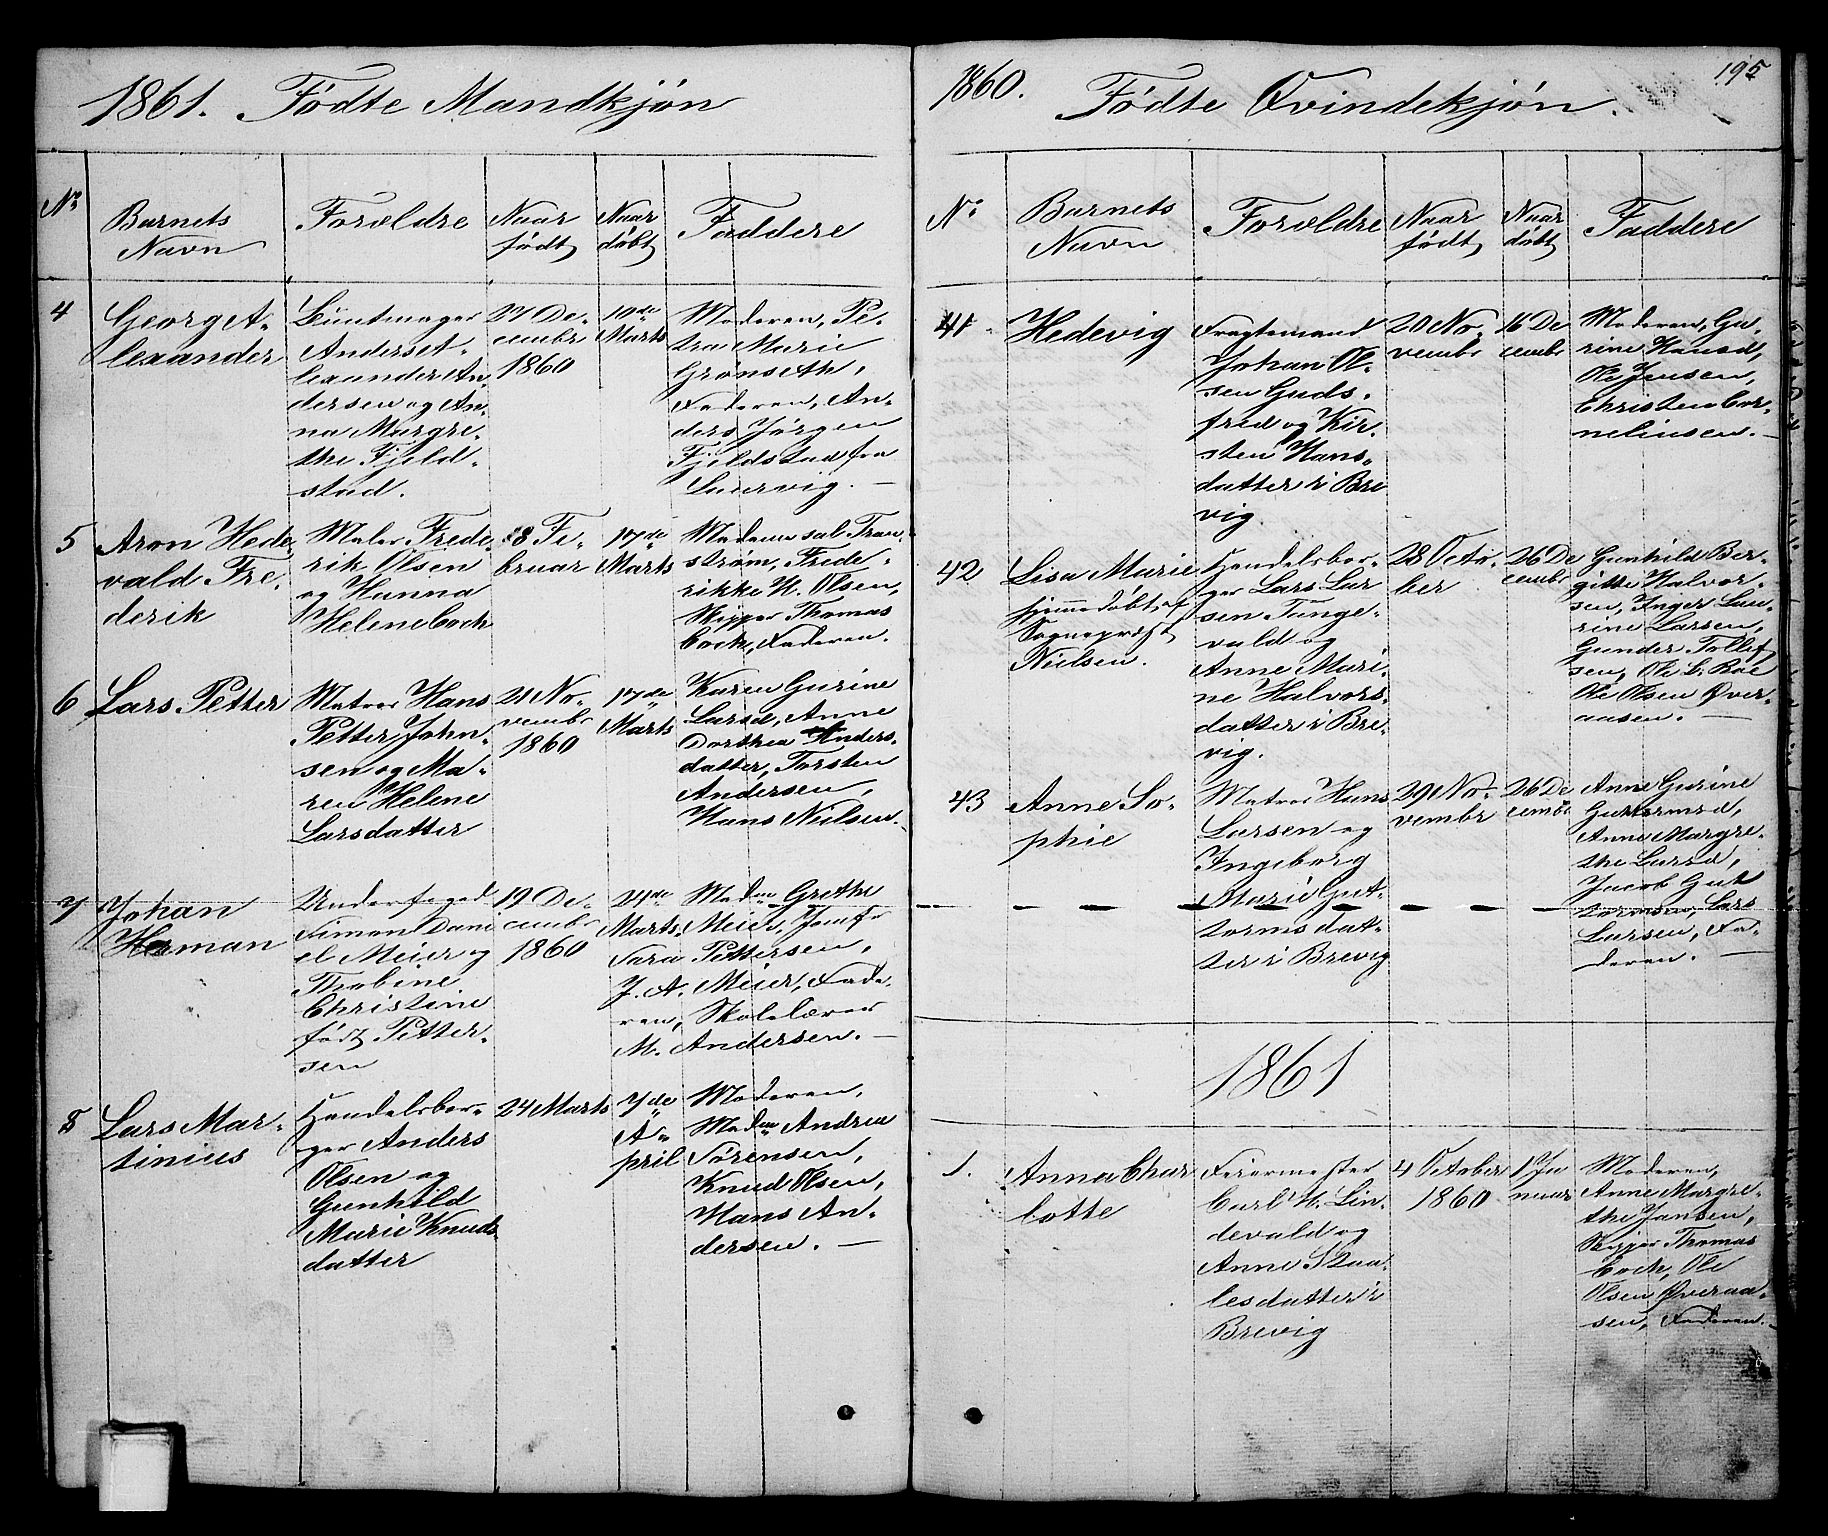 1861. Fødte Mandkjøn
No
Barnets
Navn
Forældre
Naar
født
Naar
døbt
Faddere
4
George A-
lexander
Buntmager
Anders A-
lexander An-
dersen og An-
na Margre-
the Fjeld-
stad.
27 De-
cembr
1860
10de
Marts
Moderen, Pe-
tra Marie
Grønseth,
Faderen, An-
ders Jørgen
Fjeldstad fra
Laurvig. —
5
Aron Hede-
vald Fre-
derik
Maler Frede-
rik Olsen
og Hanna
Helene Cock
8 Fe-
bruar
17de
Marts
Madame sal. Tran-
strøm, Frede-
rikke H. Olsen,
Skipper Thomas
Cock, Faderen.
6
Lars Petter
Matros Hans
Petter John-
sen og Ma-
ren Helene
Larsdatter
21 No-
vembr
1860
17de
Marts
Karen Gurine
Larsd, Anne
Dorthea Anders-
datter, Torsten
Andersen,
Hans Nielsen.
7
Johan
Herman
Underfoged
Simon Dani
el Meier og
Thobine
Christine
født Petter-
sen
19 De-
cembr
1860
24de
Marts.
Madm Grethe
Meier, Jomfr
Sara Pettersen,
J. A. Meier, Fade-
ren, Skolelærer
M. Andersen. —
8
Lars Mar-
tinius
Handelsbor-
ger Anders
Olsen og
Gunhild
Marie Knuds
datter
24 Marts
7de
A-
pril
Moderen,
Madm Andrea
Sørensen,
Knud Olsen,
Hans An-
dersen. —
195
1860. Fødte Qvindekjøn.
No
Barnets
Navn
Forældre
Naar
født
Naar
døbt
Faddere
41
Hedevig
Fragtemand
Johan Ol-
sen Guds-
fred og Kir-
sten Hans-
datter i Bre
vig.
20 No-
vembr
16 De
cembr
Moderen, Gu-
rine Hansd,
Ole Jensen,
Christen Cor-
neliusen. —
42
Lisa Marie
hjemmedøbt af
Sognepræst
Nielsen.
Handelsbor-
ger Lars Lar
sen Tange-
vald og
Anne Mari-
ne Halvors
datter i Bre-
vig.
28 Octo-
ber
26 De
cembr
Gunhild Ber-
gitte Halvor-
sen, Inger Lau-
rine Larsen,
Gunder Tollef
sen, Ole L. Roe
Ole Olsen Øver-
aasen. —
43
Anne So-
phie
Matros Hans
Larsen og
Ingeborg
Marie Gut-
torms dat-
ter i Brevig
29 No-
vembr
26 De
cembr
Anne Gurine
Guttormsd,
Anne Margre-
the Larsd,
Jacob Gut
tormsen, Lars
Larsen, Fa-
deren. —
1861
1.
Anna Char
lotte
Feiermester
Carl H. Lin-
devald og
Anne Staa-
lesdatter i
Brevig
4 October
1860
1 Ja
nuar
Moderen,
Anne Margre-
the Jansen,
Skipper Thomas
Cock, Ole
Olsen Øveraa-
sen, Faderen.